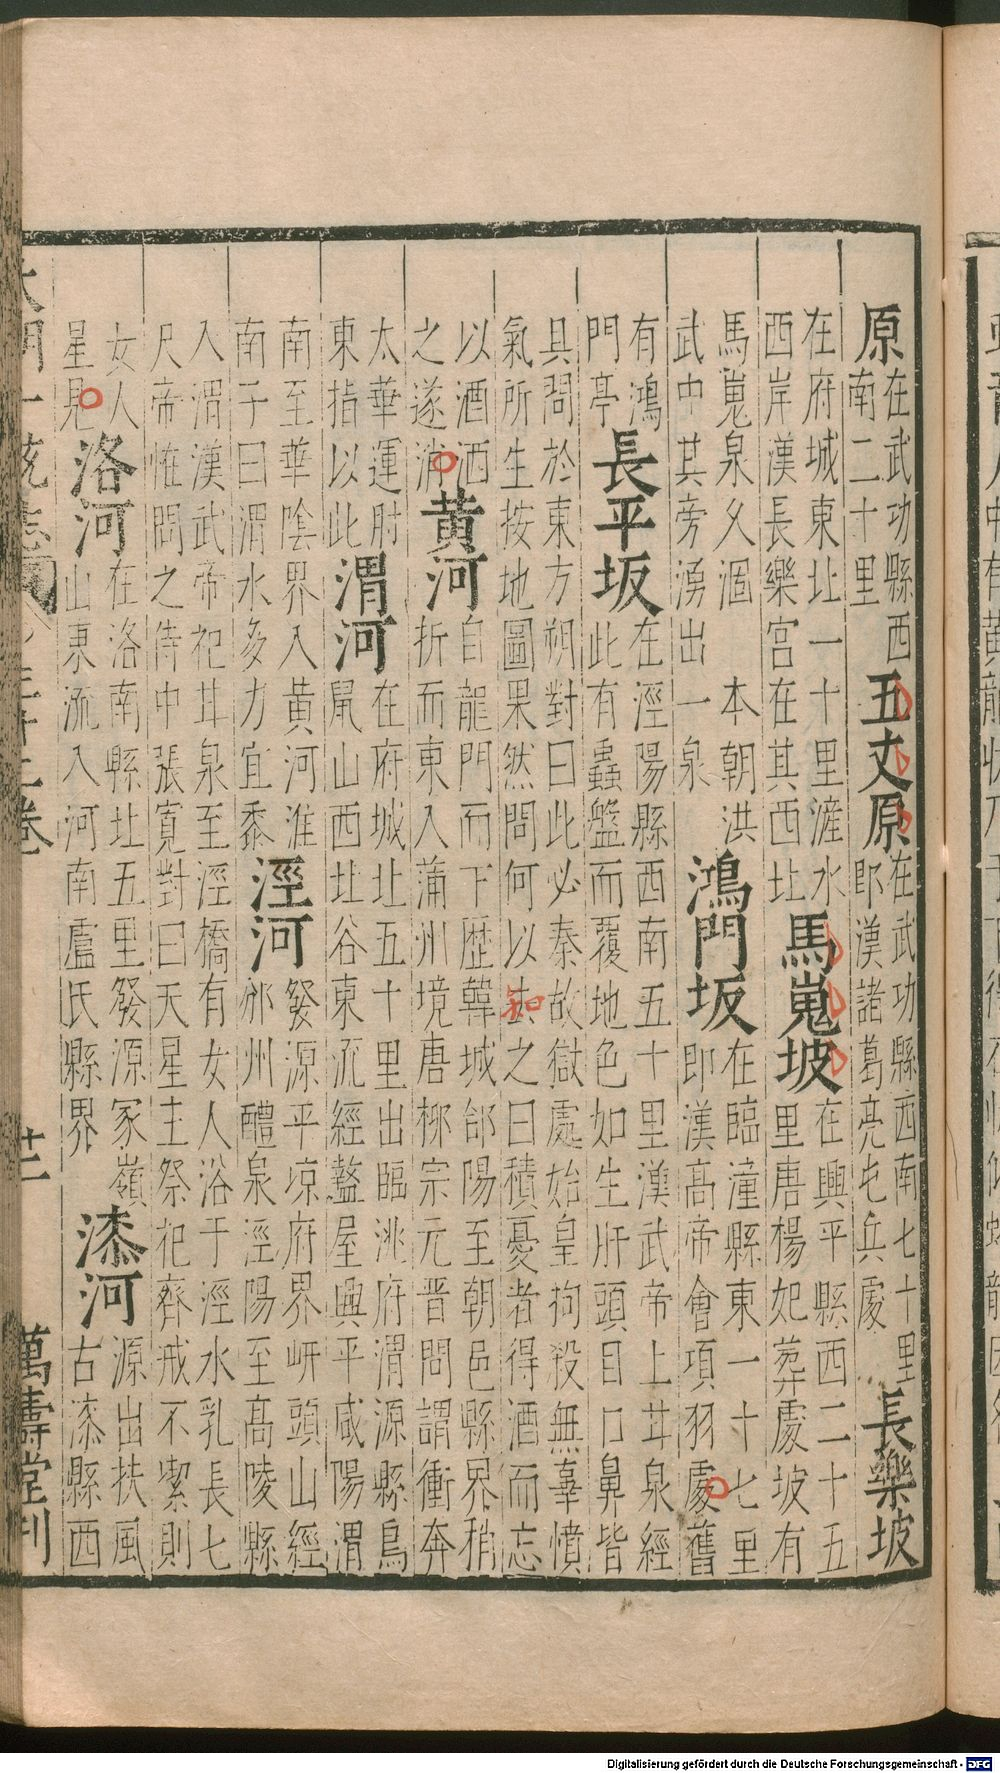 原在武功縣西南二十里五丈原在武功縣西南七十里即漢諸葛亮屯兵處長樂坡
在府城東北一十里滻水西岸漢長樂宮在其西北馬嵬坡在興平縣西二十五里唐楊妃葬處坡有
馬嵬泉久涸 本朝洪武中其旁湧出一泉鴻門坂在臨潼縣東一十七里即漢高帝會項羽處舊
有鴻門亭長平坂在涇陽縣西南五十里漢武帝上甘泉經此有蟲盤而覆地色如生肝頭目口鼻皆
具問於東方朔對曰此必秦故獄處始皇拘殺無辜憤
氣所生按地圖果然問何以去之曰積憂者得酒而忘
知
以酒洒之遂消黃河自龍門而下歷韓城郃陽至朝邑縣界稍折而東入蒲州境唐柳宗元晉問謂衝奔
太華運肘東指以此渭河在府城北五十里出臨洮府渭源縣鳥鼠山西北谷東流經盩屋興平咸陽渭
南至華陰界入黃河淮南子曰渭水多力宜黍涇河發源平凉府界岍頭山經邠州醴泉涇陽至高陵縣
入渭漢武帝祀甘泉至涇橋有女人浴于涇水乳長七
尺帝恠問之侍中張寬對曰天星主祭祀齊戒不潔則
女人星見洛河在洛南縣北五里發源冢嶺山東流入河南盧氏縣界漆河源出扶風古漆縣西
大明一統志 卷 廿一 萬壽堂刊
Digitalisierung gefördert durch die Deutsche Forschungsgemeinschaft - DFG